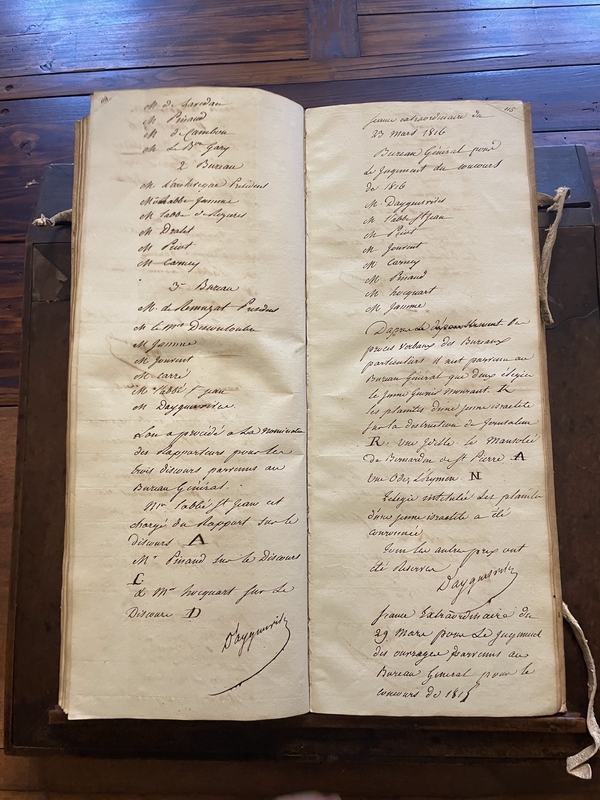 M. de
M Pinaud
M. de Cambon
M. le Bon Gary
2 Bureau
M. Président
M l'abbé Jamme
M. l'abbé de Rozieres
M. Dralet
M. Pivot
M. Carney
3e Bureau
M. de Remuzat President
M le mis Descouloubre
M Jamme
M. Jouvent
M. Carré
Mr l'abbé St jean
M Dayguesvives
L'on a procédé a la nomination
des Rapporteurs pour les
trois discours parvenus au
Bureau Général.
Mr l'abbé St Jean est
chargé du Rapport sur le
discours A
Mr Pinaud sur le Discours
C
& Mr hocquart sur Le
Discours D
Dayguesvives
115
seance extraordinaire du
23 mars 1816
Bureau Général pour
le jugement du concours
de 1816
M. Dayguesvives
M. l'abbé St Jean
M Pivot
M. Jouvent
M. Carney
M. Pinaud
M. hocquart
M. Jamme
D'après le dépouillement des
proces verbaux des Bureaux
particuliers il n'est parvenu au
Bureau Général que deux élégies
le jeune mourant R
les plaintes d'une jeune israelite
sur la destruction de Jerusalem
R. une Idille le Mausolée
de Bernardin de St Pierre A
une Ode, N
L'elegie intitulée les plaintes
d'une jeune israelite a été
couronnée
tous les autres prix ont
été réservés
Dayguesvives
seance Extraordinaire du
29 Mars pour Le jugement
des ouvrages parvenus au
Bureau Général pour le
concours de